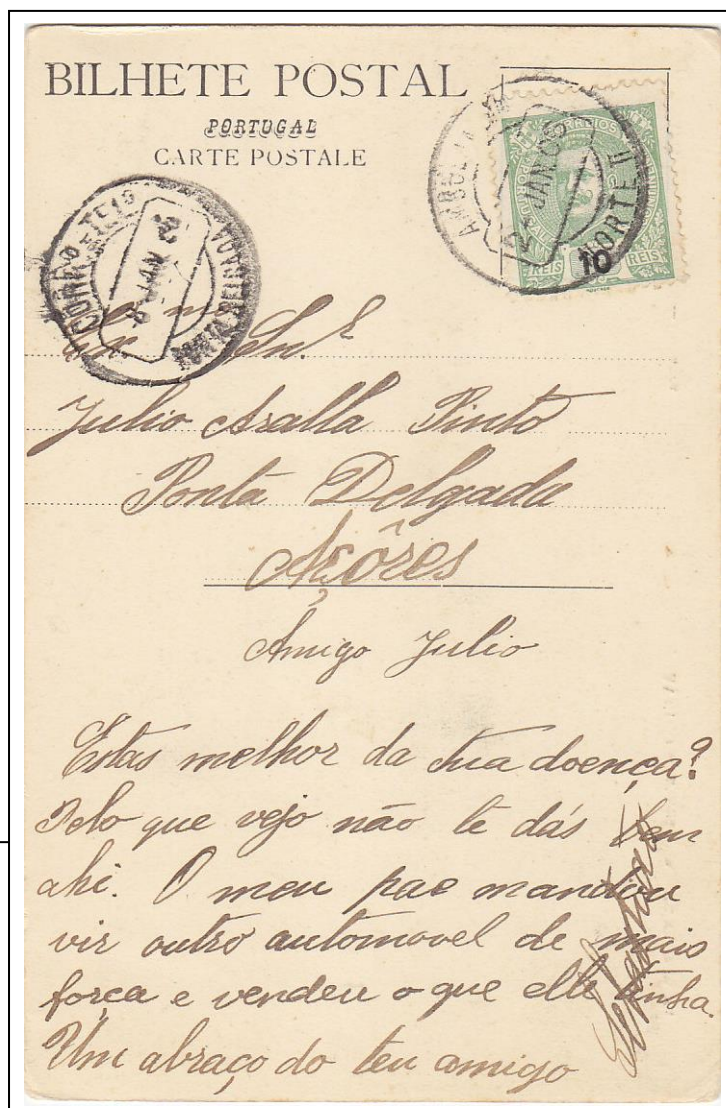 BILHETE POSTAL
PORTUGAL
CARTE POSTALE
CORREIOS
2 JAN 06
NORTE II
10
REIS REIS
CORREIO E TELO
PONTA DELGADA
8 JAN
Snr.
Julio Aralla Pinto
Ponta Delgada
Açôres
Amigo Julio
Estas melhor da tua doença?
Pelo que vejo não te dás bem
ahi. O meu pae mandou
vir outro automovel de mais
força e vendeu o que elle tinha.
Um abraço do teu amigo